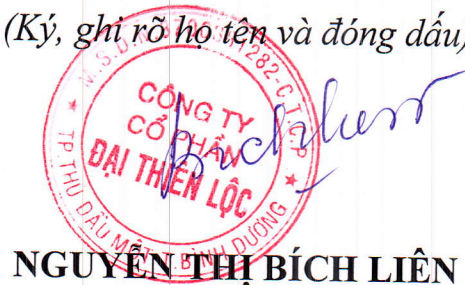 (Ký, ghi rõ họ tên và đóng dấu)
CÔNG TY
CỔ PHẦN
ĐẠI THIÊN LỘC
TP. THỦ DẦU MỘT - T. BÌNH DƯƠNG
NGUYỄN THỊ BÍCH LIÊN